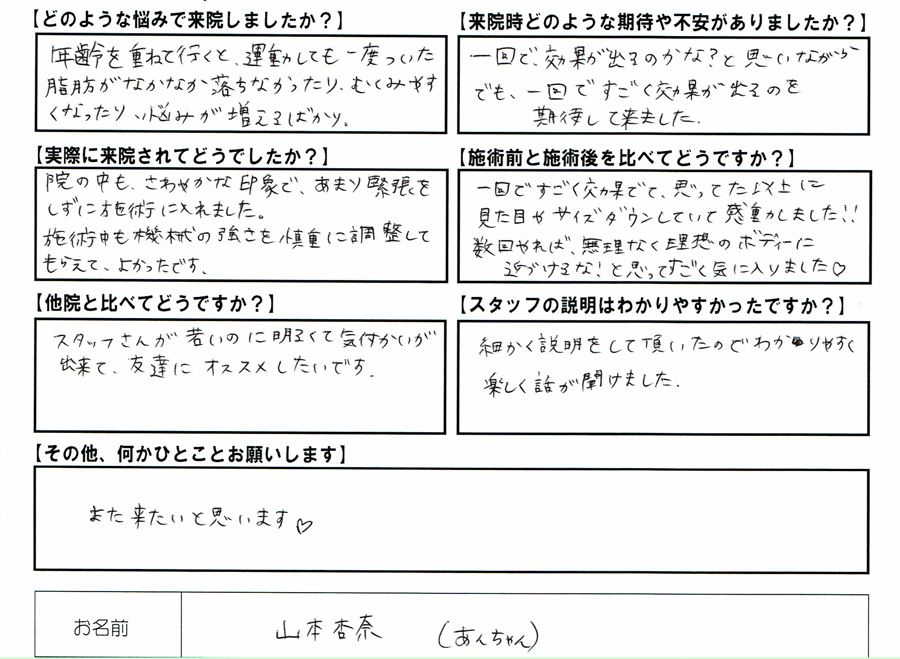 【どのような悩みで来院しましたか？】
年齢を重ねて行くと、運動しても一度ついた
脂肪がなかなか落ちなかったり、むくみやす
くなったり、悩みが増えるばかり。
【来院時どのような期待や不安がありましたか？】
一回で、効果が出るのかな？と思いながら
でも、一回ですごく効果が出るのを
期待して来ました。
【実際に来院されてどうでしたか？】
院の中も、さわやかな印象で、あまり緊張を
しずに施術に入れました。
施術中も機械の強さを慎重に調整して
もらえて、よかったです。
【施術前と施術後を比べてどうですか？】
一回ですごく効果でて、思ってた以上に
見た目やサイズダウンしていて感動しました!!
数回やれば、無理なく理想のボディーに
近づけるな！と思ってすごく気に入りました♡
【他院と比べてどうですか？】
スタッフさんが若いのに明るくて気付かいが
出来て、友達にオススメしたいです。
【スタッフの説明はわかりやすかったですか？】
細かく説明をして頂いたのでわかりやすく
楽しく話が聞けました。
【その他、何かひとことお願いします】
また来たいと思います♡
お名前
山本杏奈 （あんちゃん）